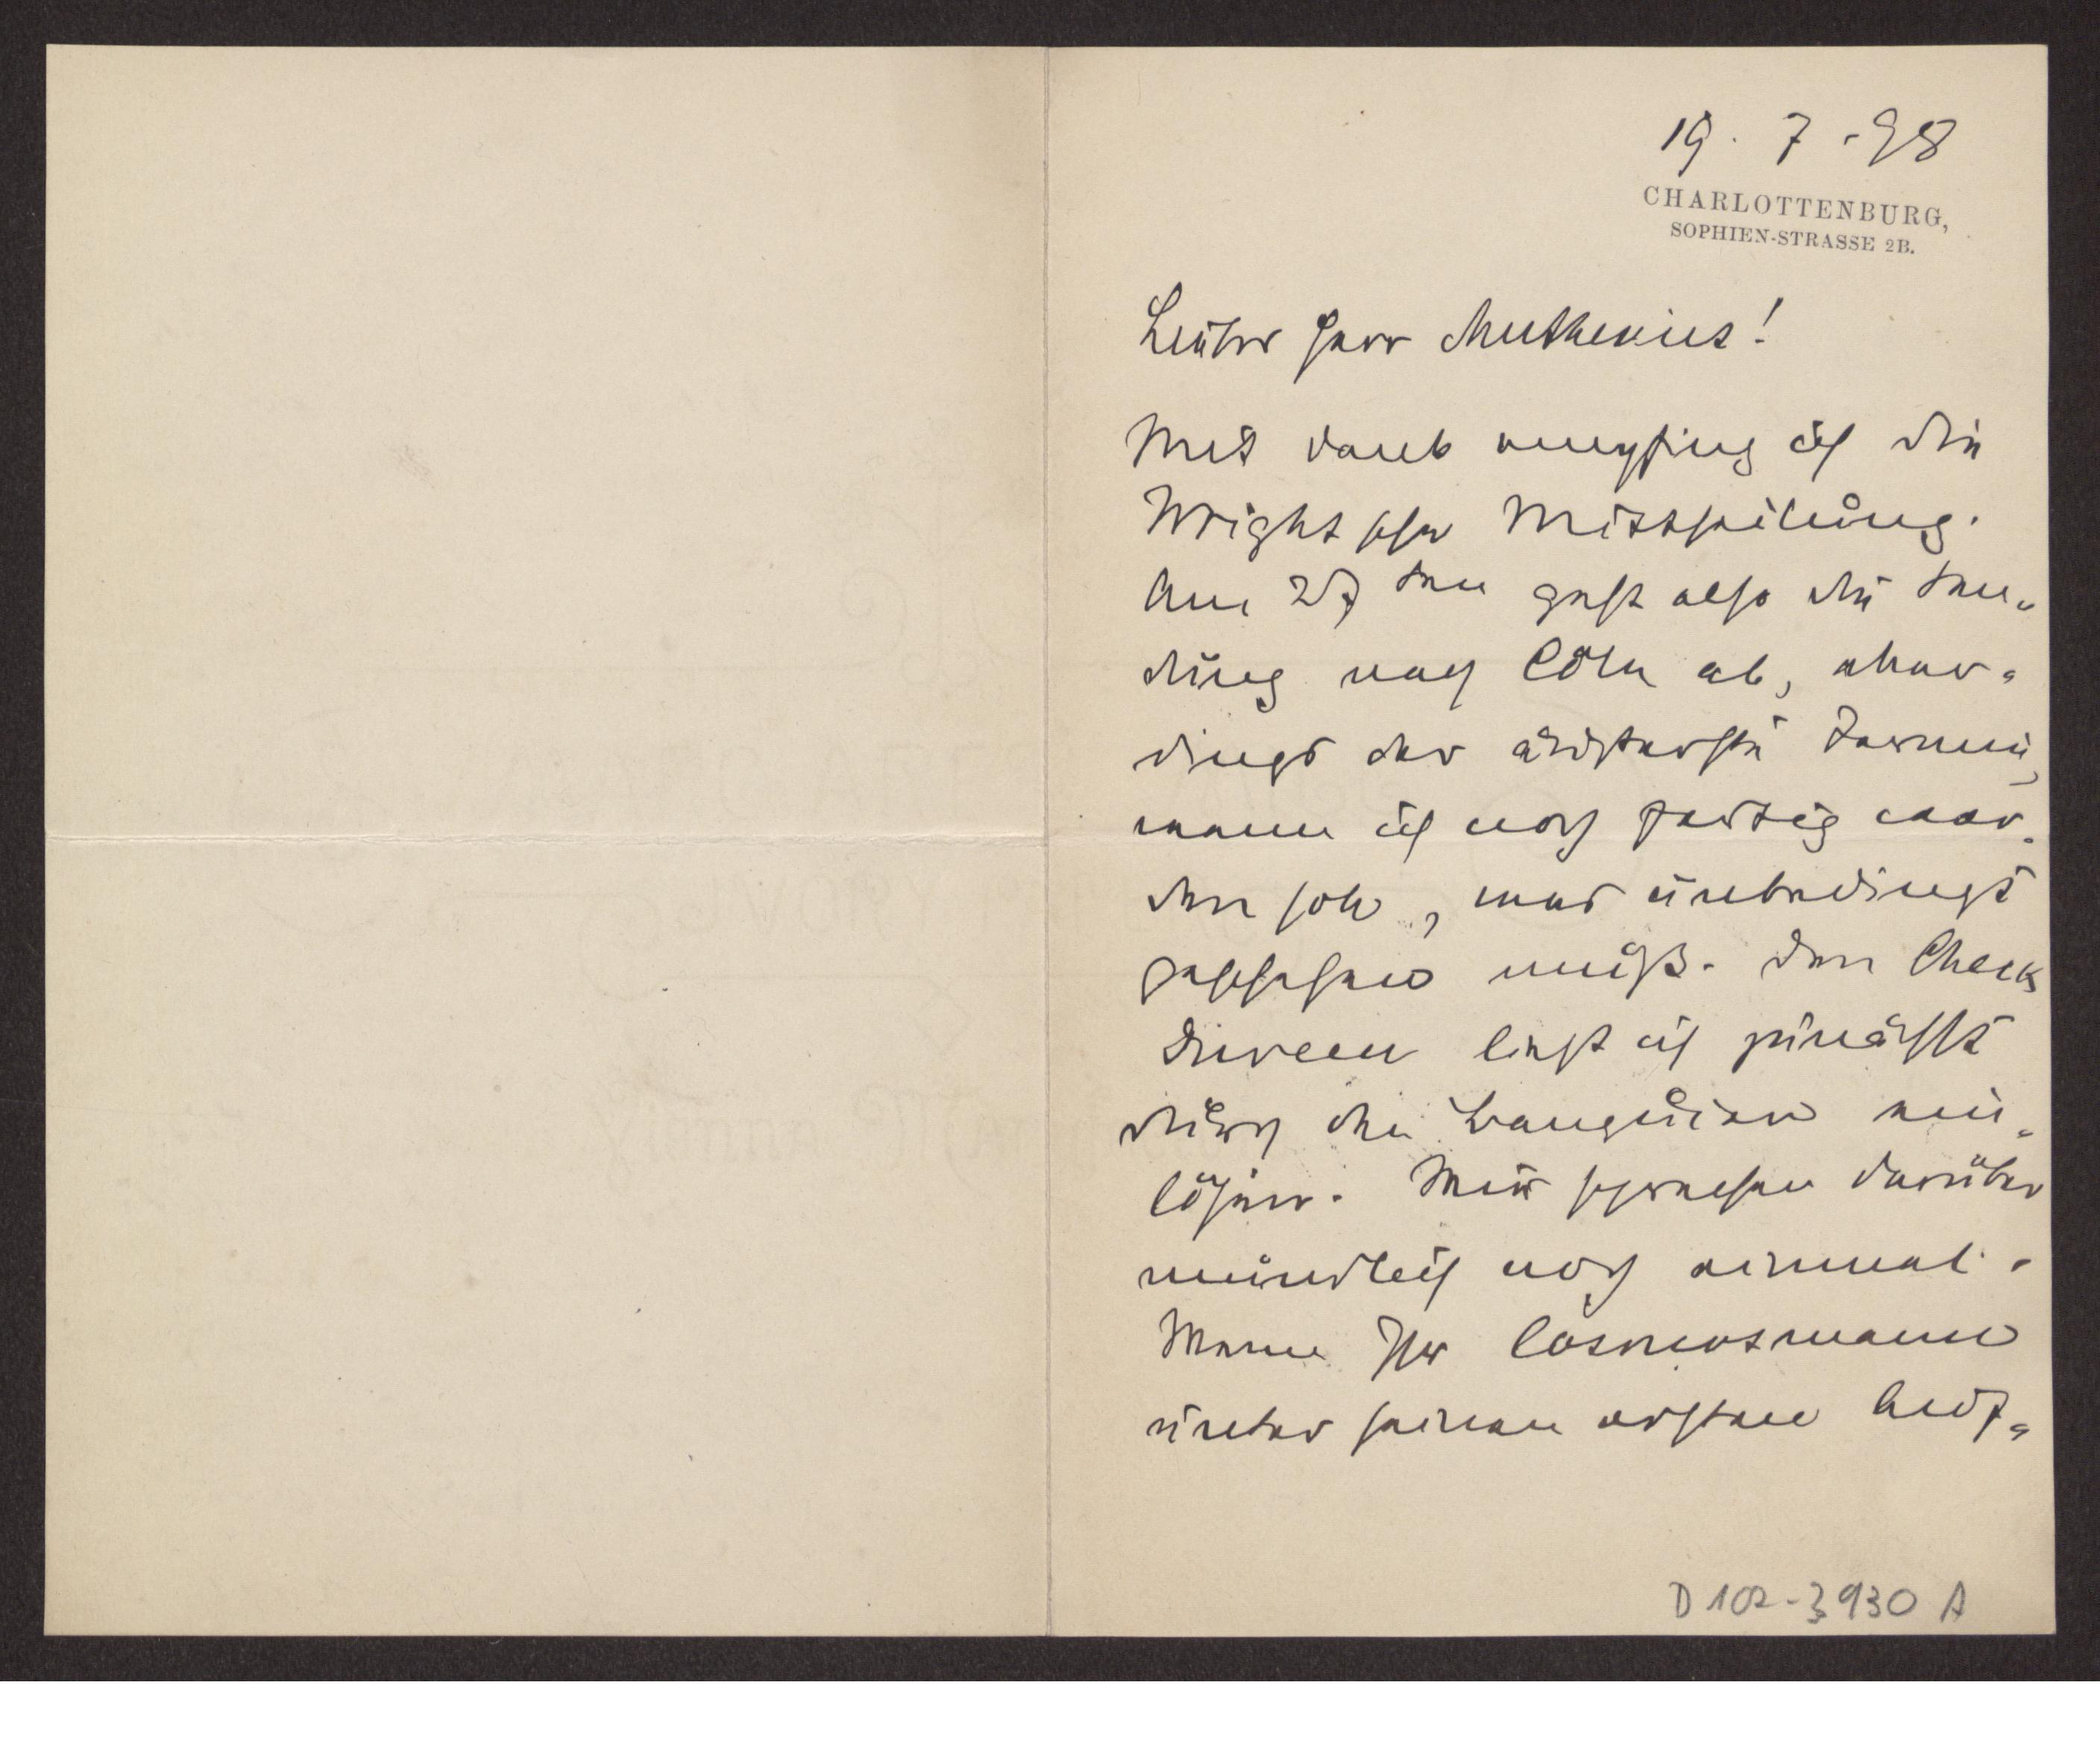 19. 7. 98
CHARLOTTENBURG,
SOPHIEN-STRASSE 2B.
Lieber Herr Muthesius!
Mit Dank empfing ich die
Wright'sche Mittheilung.
Am 27ten geht also die Sen-
dung nach Cöln ab, aller-
dings der äußerste Termin,
wenn ich noch fertig wer-
den soll, was unbedingt
geschehen muß. Den Check
ließ ich zunächst
durch den Banquier ein-
lösen. Wir sprechen darüber
mündlich noch einmal.
Wenn Ihr
unter seinen ersten Auf-
D 102-3930 A